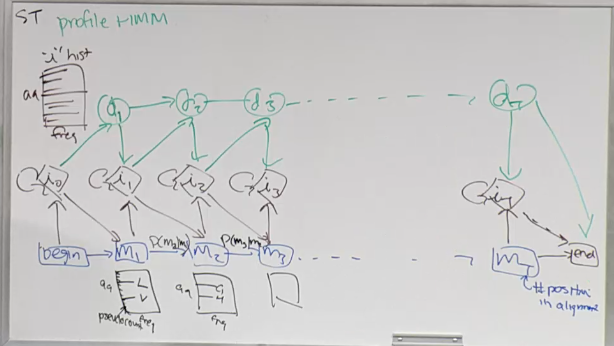 ST profile HMM
"i" hist
aa
freq
d1
d2
d3
i0
i1
i2
i3
begin
m1
P(m2|m1)
m2
P(m3|m2)
m3
end
aa
L
V
pseudocount
freq
aa
freq
# position
in alignment